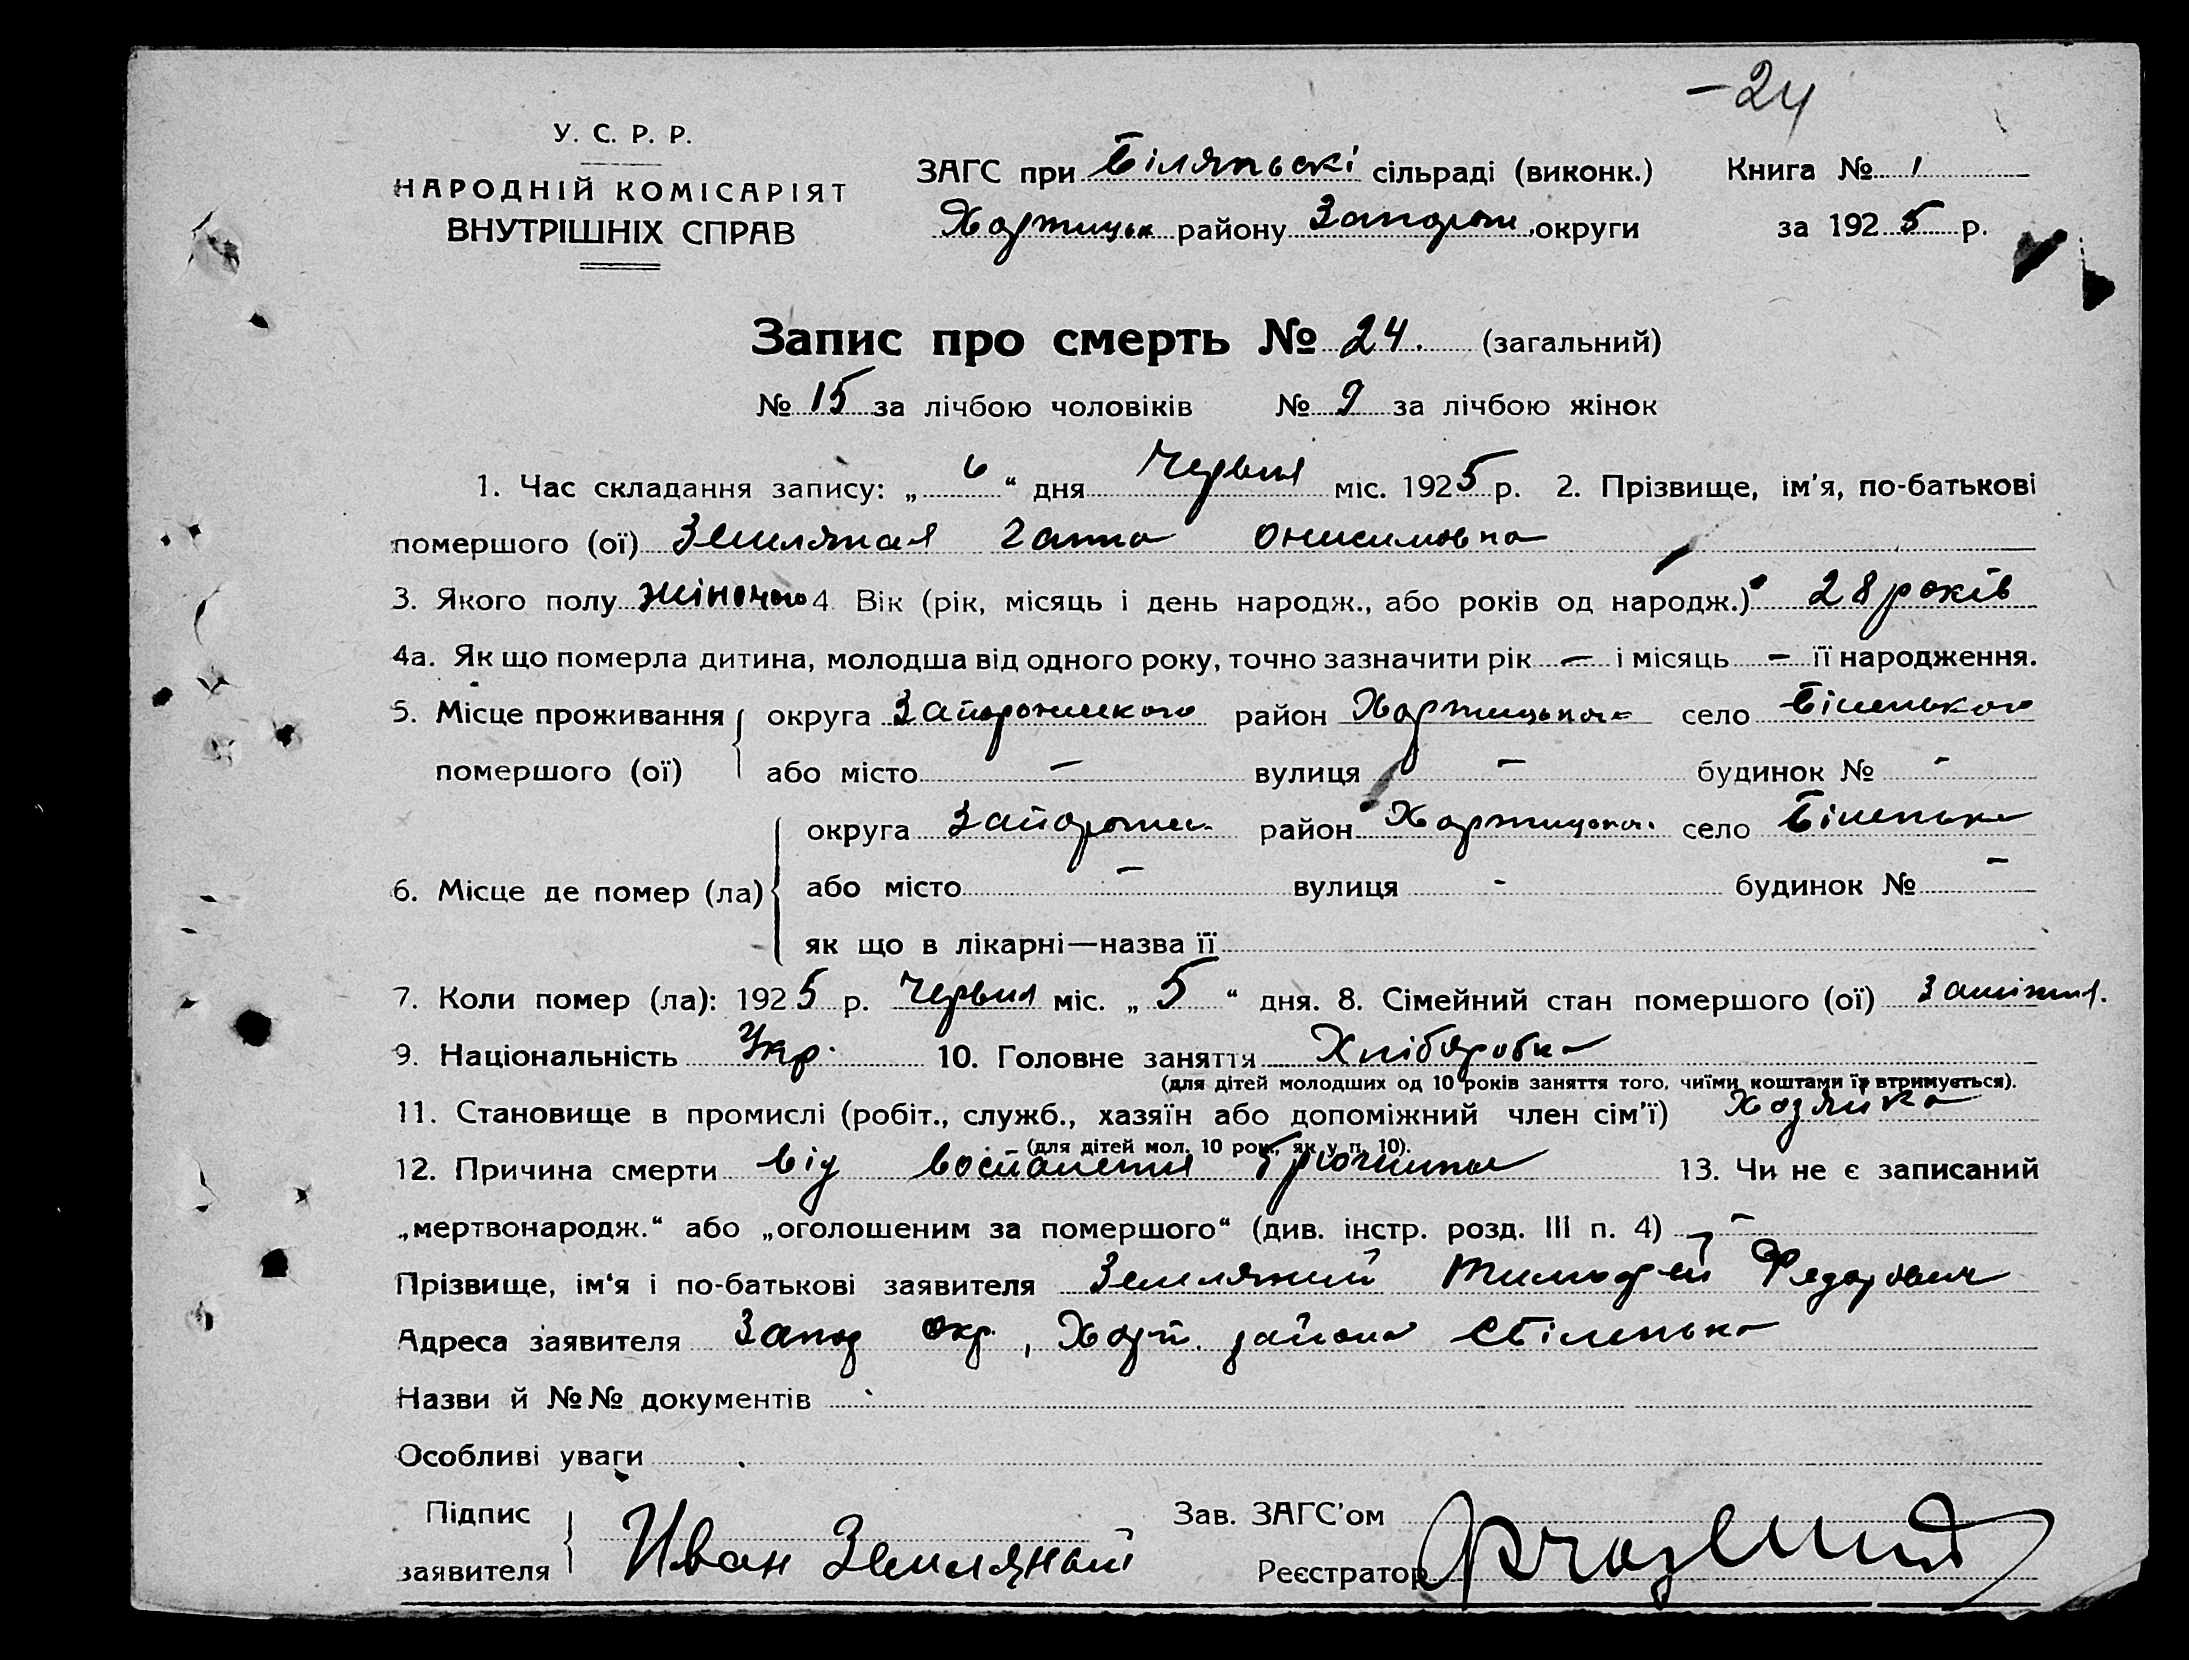 - 24
У. С. Р. Р.
НАРОДНІЙ КОМІСАРІЯТ
ВНУТРІШНІХ СПРАВ
ЗАГС при сільраді (виконк.) Книга № 1
Хортицьк району Запорож. округи за 1925 р.
Запис про смерть № 24. (загальний)
№ 15 за лічбою чоловіків № 9 за лічбою жінок
1. Час складання запису: „ 6 “ дня Червня міс. 1925 р. 2. Прізвище, ім'я, по-батькові
помершого (ої) Земляная Ганна Онисимовна
3. Якого полу жіночого 4 Вік (рік, місяць і день народж., або років од народж.) 28 років
4а. Як що померла дитина, молодша від одного року, точно зазначити рік — і місяць — її народження.
5. Місце проживання округа Запорожського район село Біленького
помершого (ої) або місто — вулиця — будинок № -
округа Запорожськ район село Біленьке
6. Місце де помер (ла) або місто — вулиця - будинок № —
як що в лікарні—назва її
7. Коли помер (ла): 1925 р. Червня міс. „ 5 “ дня. 8. Сімейний стан помершого (ої) Заміжня.
9. Національність Укр. 10. Головне заняття Хліборобка
(для дітей молодших од 10 років заняття того, чиїми коштами їх втримується).
11. Становище в промислі (робіт., служб., хазяїн або допоміжний член сім'ї) Хозяйка
(для дітей мол. 10 рок., як у п. 10).
12. Причина смерти від воспаления 13. Чи не є записаний
„мертвонародж.“ або „оголошеним за помершого“ (див. інстр. розд. III п. 4) —
Прізвище, ім'я і по-батькові заявителя Земляний Тимофей Федорович
Адреса заявителя Запор окр., Хорт. района с Біленька
Назви й №№ документів
Особливі уваги
Підпис Зав. ЗАГС'ом
заявителя Иван Земляной Реєстратор